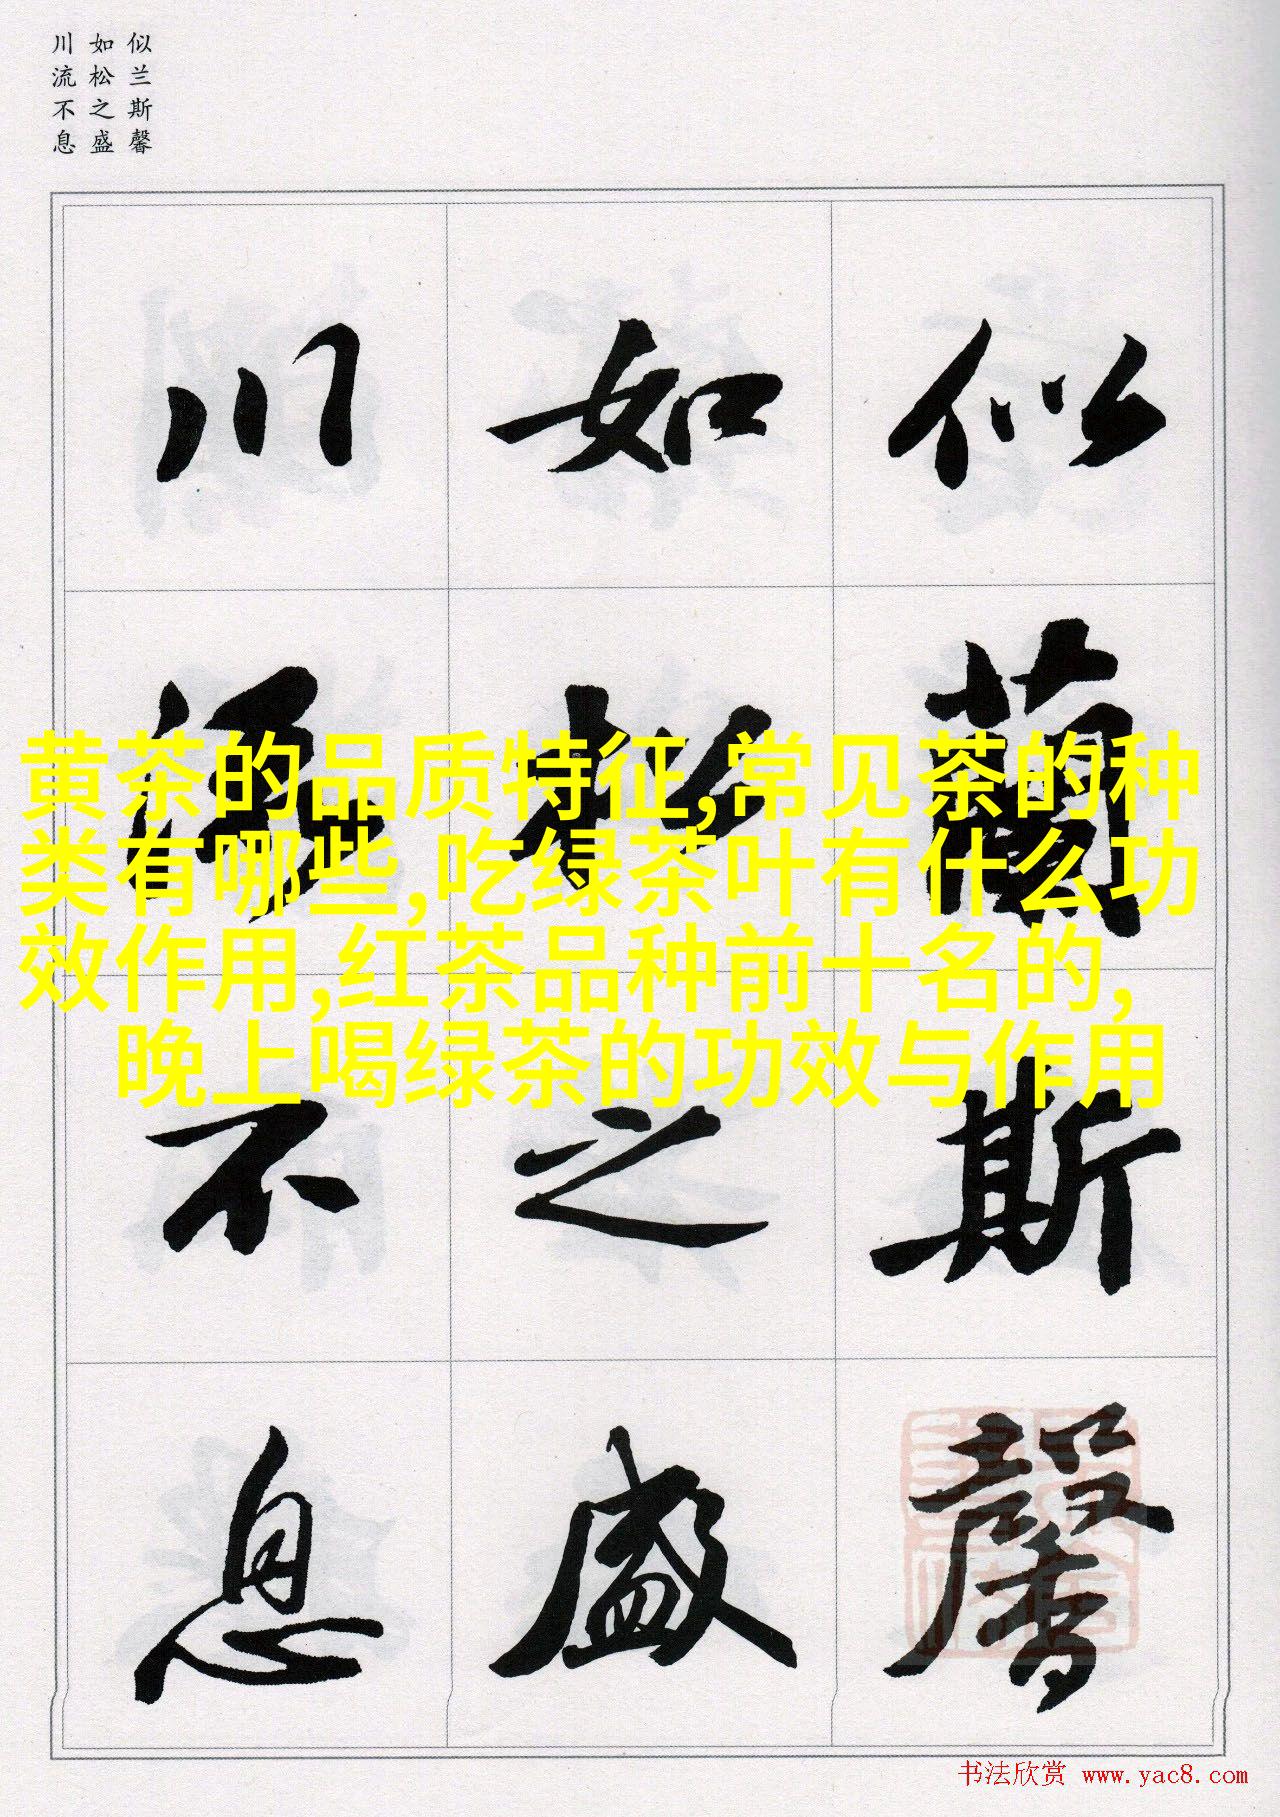 似兰斯馨
如松之盛
川流不息
似蘭斯馨
如松之盛
川流不息
黄茶的品质特征,常见茶的种
类有哪些,吃绿茶叶有什么功
效作用,红茶品种前十名的,
晚上喝绿茶的功效与作用
书法欣赏 www.yac8.com